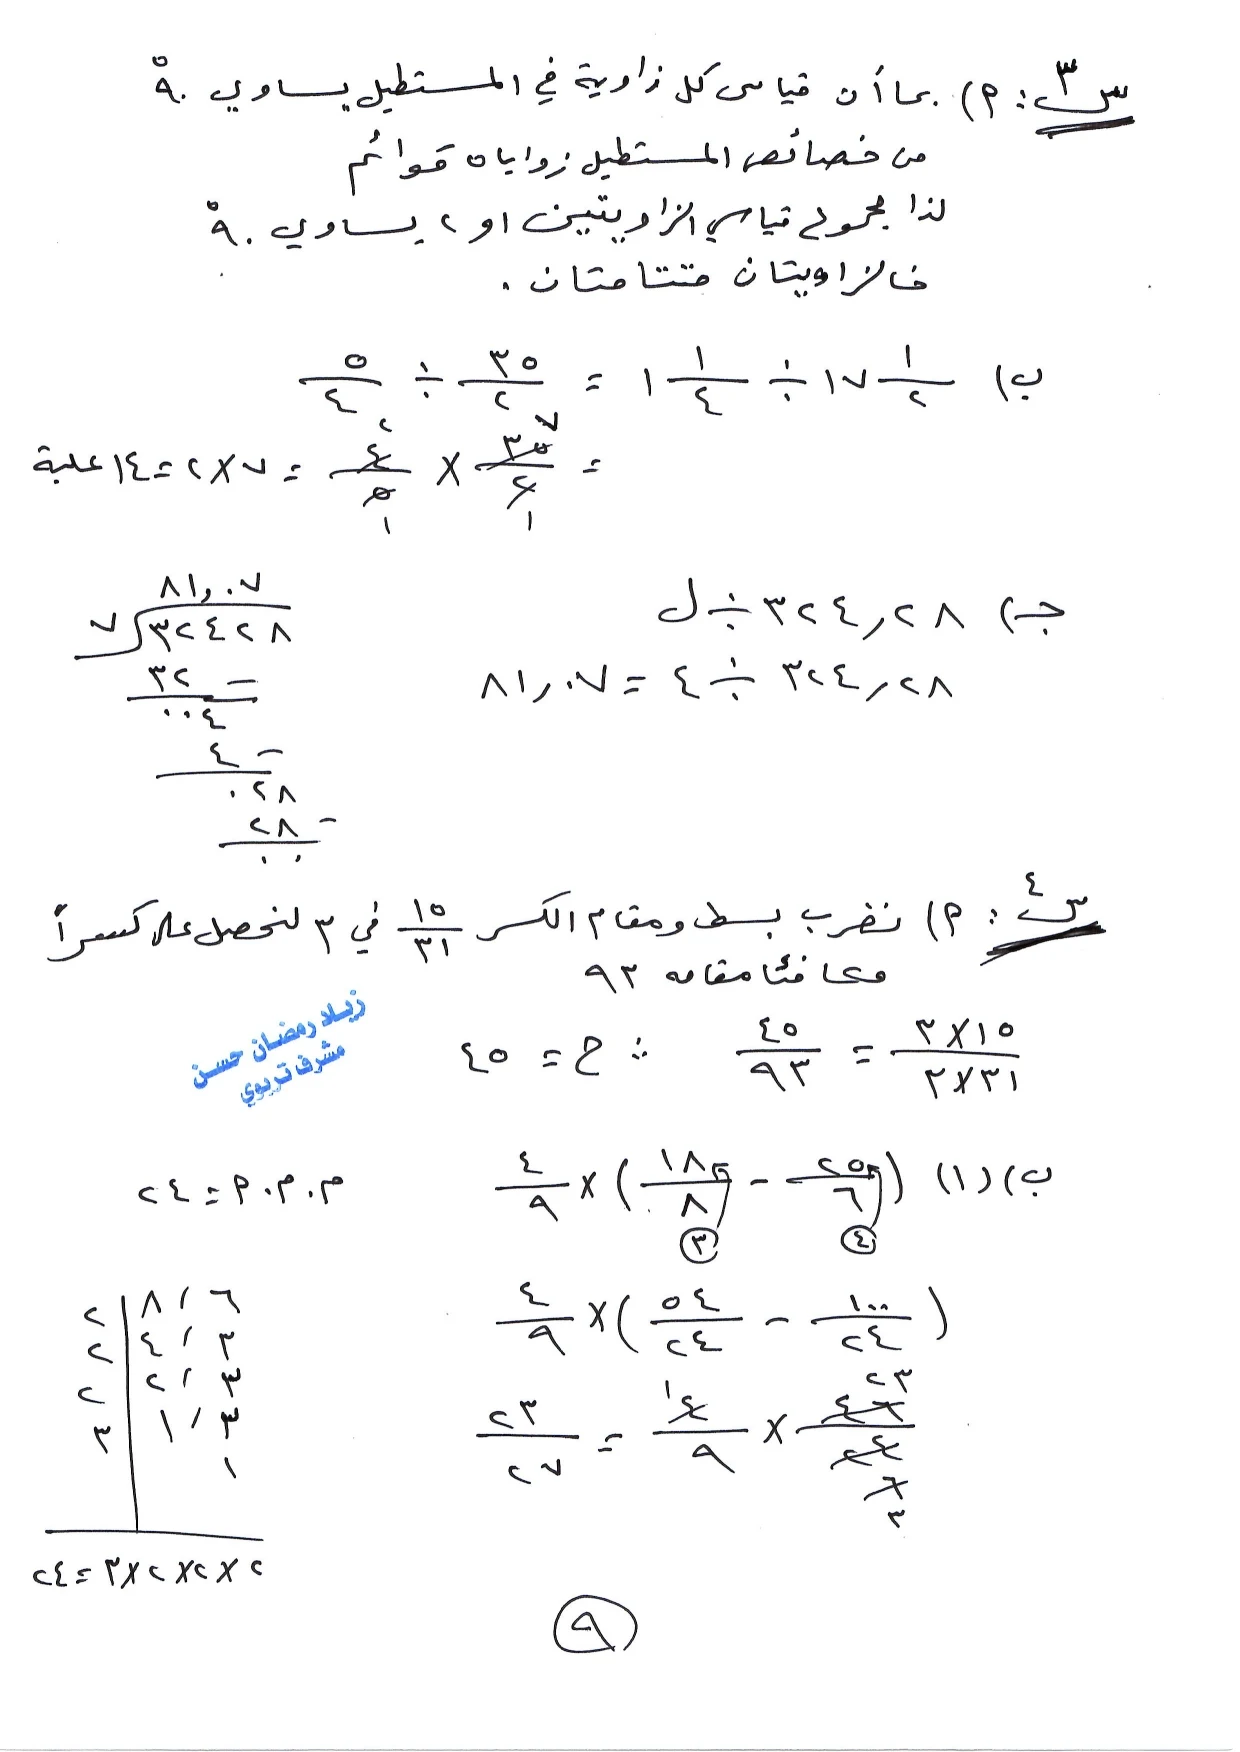 س٣: م) بما أن قياس كل زاوية في المستطيل يساوي ٩٠°
من خصائص المستطيل زواياه قوائم
لذا مجموع قياسي الزاويتين ١ و ٢ يساوي ٩٠°
فالزاويتان متتامتان .
ب) ١٧ ١/٢ ÷ ١ ١/٤ = ٣٥/٢ ÷ ٥/٤
= ٣٥/٢ × ٤/٥ = ٧ × ٢ = ١٤ علبة
٧ ٢
١ ١
جـ) ٣٢٤,٢٨ ÷ ل
٣٢٤,٢٨ ÷ ٤ = ٨١,٠٧
٨١,٠٧
٧ ٣٢٤٢٨
٣٢ −
٠٠٤
٤ −
٠٢٨
٢٨ −
٠٠
س٤: م) نضرب بسط ومقام الكسر ١٥/٣١ في ٣ لنحصل على كسراً
مكافئا مقامه ٩٣
١٥×٣/٣١×٣ = ٤٥/٩٣ ∴ ح = ٤٥
زيلا رمضان حسن
مشرف تربوي
ب) (١) (٢٥/٦ − ١٨/٨) × ٤/٩
٤ ٣
م.م.م = ٢٤
(١٠٠/٢٤ − ٥٤/٢٤) × ٤/٩
٤٦/٢٤ × ٤/٩ = ٢٣/٢٧
٢٣ ١
٦
٣
٦ ، ٨ ٢
٣ ، ٤ ٢
٣ ، ٢ ٢
٣ ، ١ ٣
١
٢ × ٢ × ٢ × ٣ = ٢٤
٩